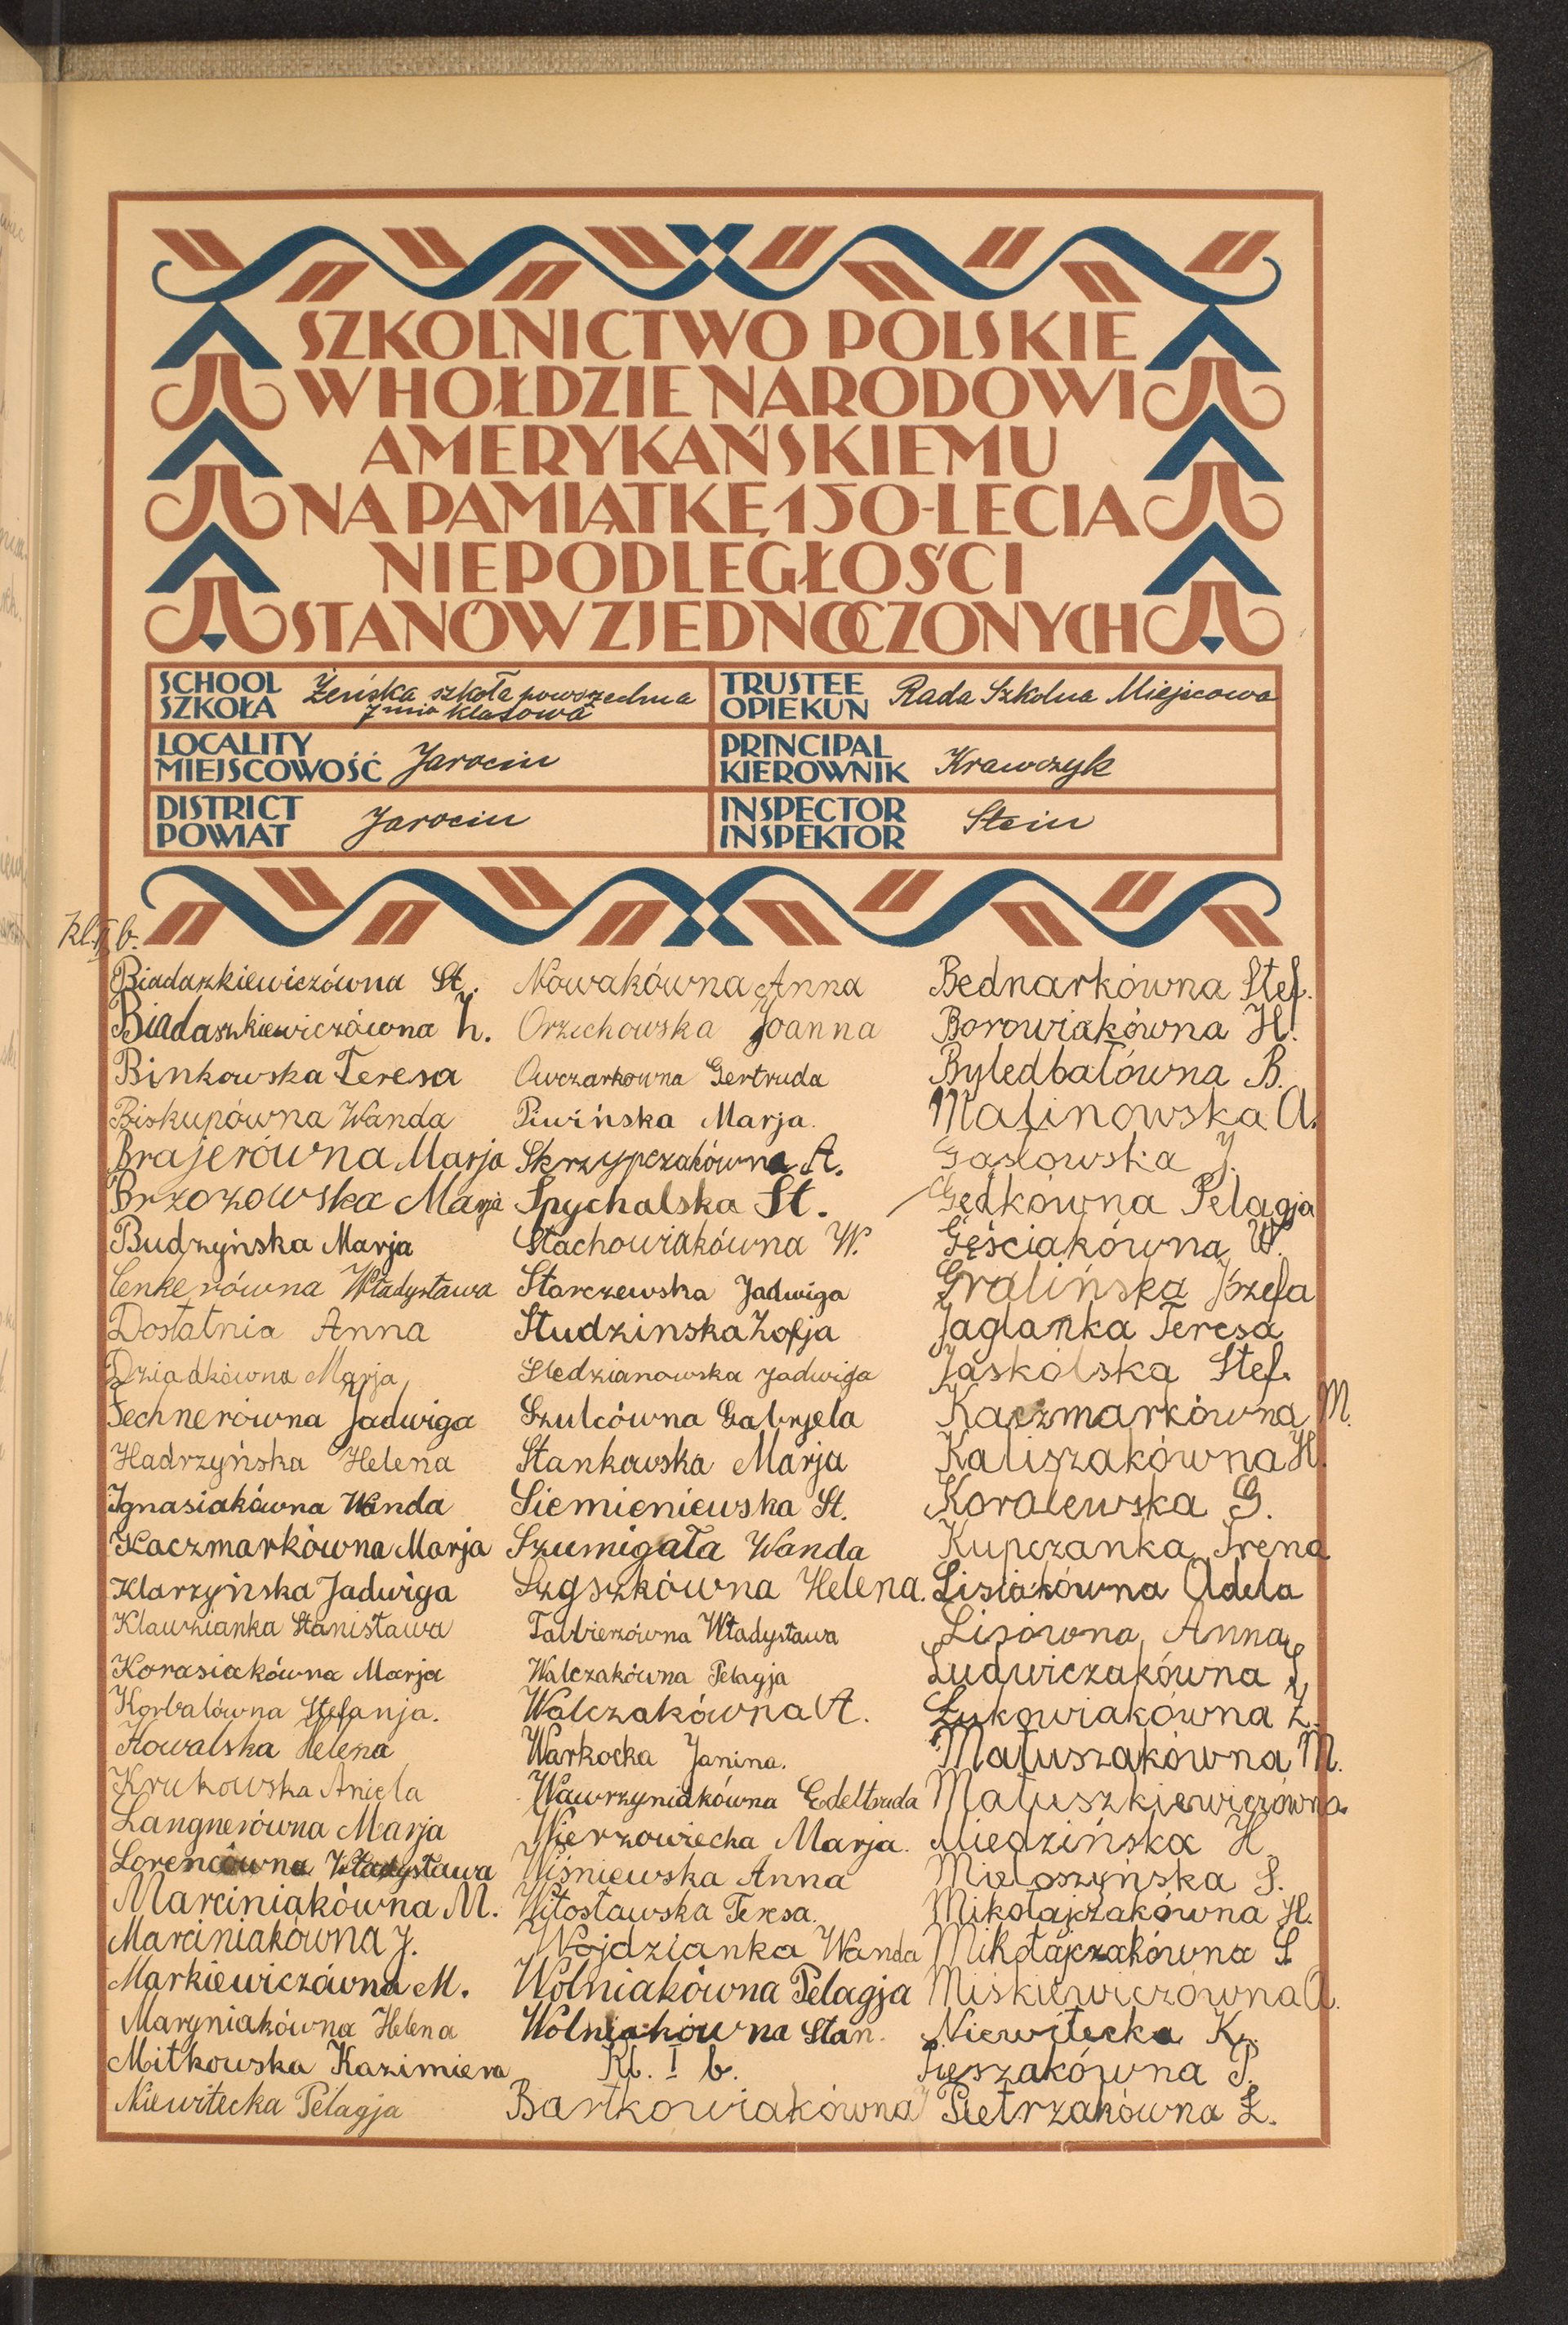 SZKOLNICTWO POLSKIE
W HOŁDZIE NARODOWI
AMERYKAŃSKIEMU
NA PAMIĄTKĘ 150-LECIA
NIEPODLEGŁOŚCI
STANÓW ZJEDNOCZONYCH
SCHOOL
SZKOŁA
Żeńska szkoła powszechna
7 mio klasowa
TRUSTEE
OPIEKUN
Rada Szkolna Miejscowa
LOCALITY
MIEJSCOWOŚĆ
Jarocin
PRINCIPAL
KIEROWNIK
Krawczyk
DISTRICT
POWIAT
Jarocin
INSPECTOR
INSPEKTOR
Stein
Kl. II b.
Biadaszkiewiczówna St.
Biadaszkiewiczówna h.
Binkowska Teresa
Biskupówna Wanda
Brajerówna Marja
Brzozowska Marja
Budzyńska Marja
Cenkerówna Władysława
Dostatnia Anna
Dziadkówna Marja
Fechnerówna Jadwiga
Hadrzyńska Helena
Ignasiakówna Wanda
Kaczmarkówna Marja
Klarzyńska Jadwiga
Klauzianka Stanisława
Korasiakówna Marja
Korbalówna Stefanja.
Kowalska Helena
Krukowska Aniela
Langnerówna Marja
Lorencówna Władysława
Marciniakówna M.
Marciniakówna J.
Markiewiczówna M.
Maryniakówna Helena
Mitkowska Kazimiera
Niewitecka Pelagja
Nowakówna Anna
Orzechowska Joanna
Owczarkowna Gertruda
Piwińska Marja.
Skrzypczakówna A.
Spychalska St.
Stachowiakówna W.
Starczewska Jadwiga
Studzinska Zofja
Sledzianowska Jadwiga
Szulcówna Gabryela
Stankowska Marja
Siemieniewska St.
Szumigała Wanda
Szyszkówna Helena.
Władysława
Walczakówna Pelagja
Walczakówna A.
Warkocka Janina.
Wawrzyniakówna Edeltruda
Wierzowiecka Marja.
Wiśniewska Anna
Witosławska Teresa.
Wojdzianka Wanda
Wolniakówna Pelagja
Wolniakówna Stan.
Kl. I b.
Bartkowiakówna
Bednarkówna Stef.
Borowiakówna H.
Byledbałówna B.
Malinowska A.
Gąsłowska J.
Gedkówna Pelagja
Gęściakówna W.
Gralińska Józefa
Jaglanka Teresa
Jaskólska Stef.
Kaczmarkówna M.
Kaliszakówna H.
Koralewska G.
Kupczanka Irena
Lisiakówna Adela
Lisówna Anna
Ludwiczakówna S.
Łukowiakówna Z.
Matuszakówna M.
Matuszkiewiczówna
Miedzińska H.
Mieloszyńska S.
Mikołajczakówna H.
Mikołajczakówna S.
Miśkiewiczówna A.
Niewitecka K.
Pieszakówna P.
Pietrzakówna Z.